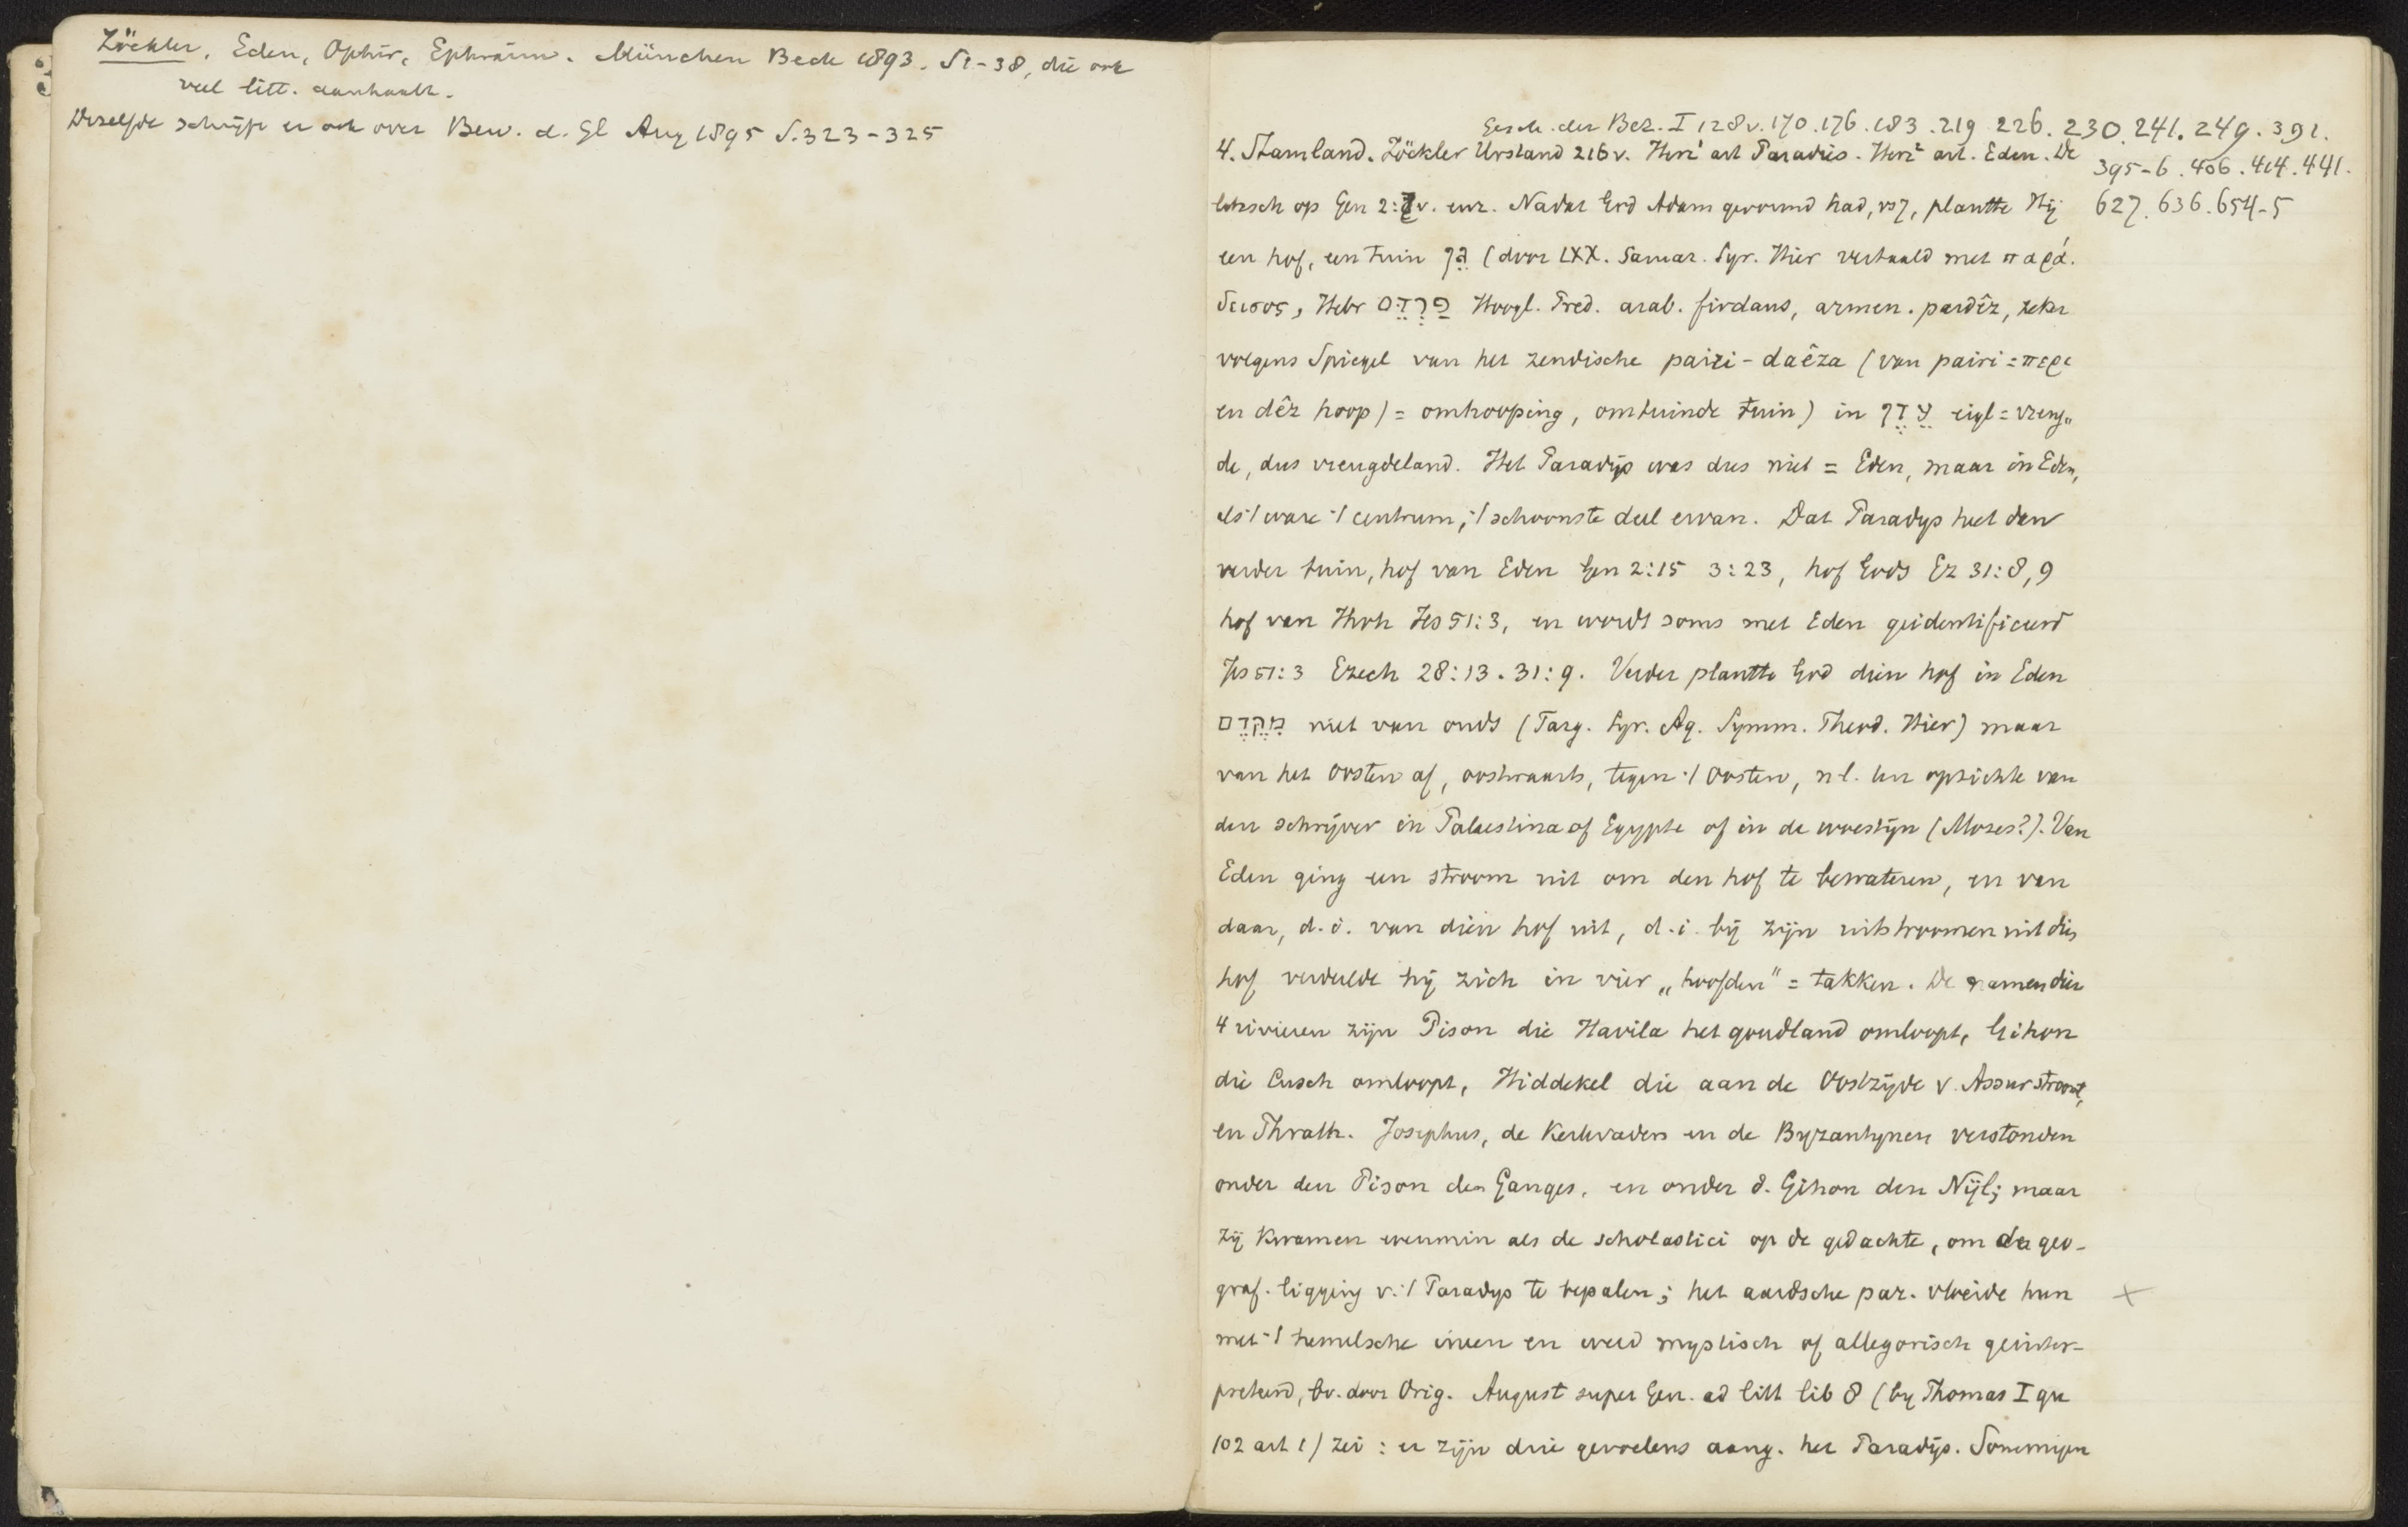 Zöckler, Eden, Ophir, Ephraim. München Beck 1893. S1-38, die ook
veel litt. aanhaalt.
Dezelfde schrijft er ook over Bew. d. Gl Aug 1895 S.323-325
Gesch. der Bez. I 128v. 170. 176. 183. 219 226. 230. 241. 249. 391.
395-6. 406. 414. 441.
627. 636. 654-5
4. Stamland. Zöckler Urstand 216v. Herz¹ art Paradies. Herz² art. Eden. De
litzsch op Gen 2:7v. enz. Nadat God Adam gevormd had, vs 7, plantte Hij
een hof, een tuin גַּן (door LXX. Samar. Syr. Hier vertaald met παρά.
δεισος, Hebr פַּרְדֵּס Hoogl. Pred. arab. firdaus, armen. pardêz, zeker
volgens Spiegel van het zendische pairi-daêza (van pairi = περι
en dêz hoop) = omhooping, omtuinde tuin) in עֵדֶן eigl = vreug„
de, dus vreugdeland. Het Paradijs was dus niet = Eden, maar in Eden,
als 't ware 't centrum, 't schoonste deel ervan. Dat Paradys heet dan
verder tuin, hof van Eden Gen 2:15 3:23, hof Gods Ez 31:8,9
hof van Hvh Jes 51:3, en wordt soms met Eden geidentificeerd
Jes 51:3 Ezech 28:13. 31:9. Verder plantte God dien hof in Eden
מִקֶּדֶם niet van ouds (Targ. Syr. Aq. Symm. Theod. Hier) maar
van het Oosten af, oostwaarts, tegen 't Oosten, nl. ten opzichte van
den schrijver in Palaestina of Egypte of in de woestijn (Mozes?). Van
Eden ging een stroom uit om den hof te bewateren, en van
daar, d.i. van dien hof uit, d.i. bij zijn uitstroomen uit dien
hof verdeelde hij zich in vier „hoofden" = takken. De namen dier
4 rivieren zijn Pison die Havila het goudland omloopt, Gihon
die Cusch omloopt, Hiddekel die aan de Oostzijde v. Assur stroomt,
en Phrath. Josephus, de Kerkvaders en de Byzantynen verstonden
onder den Pison den Ganges, en onder d. Gihon den Nijl; maar
zij kwamen evenmin als de scholastici op de gedachte, om de geo-
graf. ligging v. 't Paradys te bepalen; het aardsche par. vloeide hun +
met 't hemelsche ineen en werd mystisch of allegorisch geinter-
preteerd, bv. door Orig. August super Gen. ad litt lib 8 (by Thomas I qu
102 art 1) zei: er zijn drie gevoelens aang. het Paradijs. Sommigen